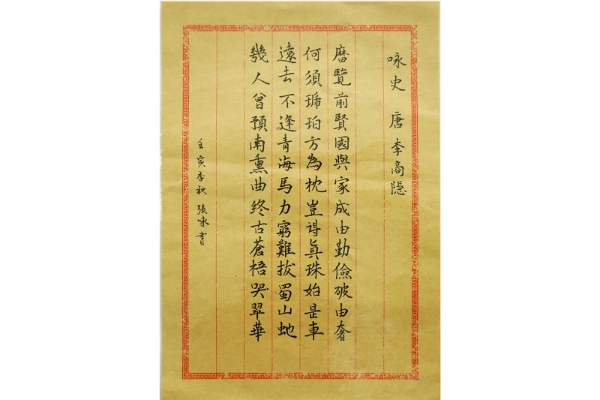 咏史 唐 李商隱
曆覽前賢國與家成由勤儉破由奢
何須琥珀方為枕豈得眞珠始是車
遠去不逢青海馬力窮難拔蜀山虵
幾人曾預南熏曲終古蒼梧哭翠華
壬寅季秋 張咏書